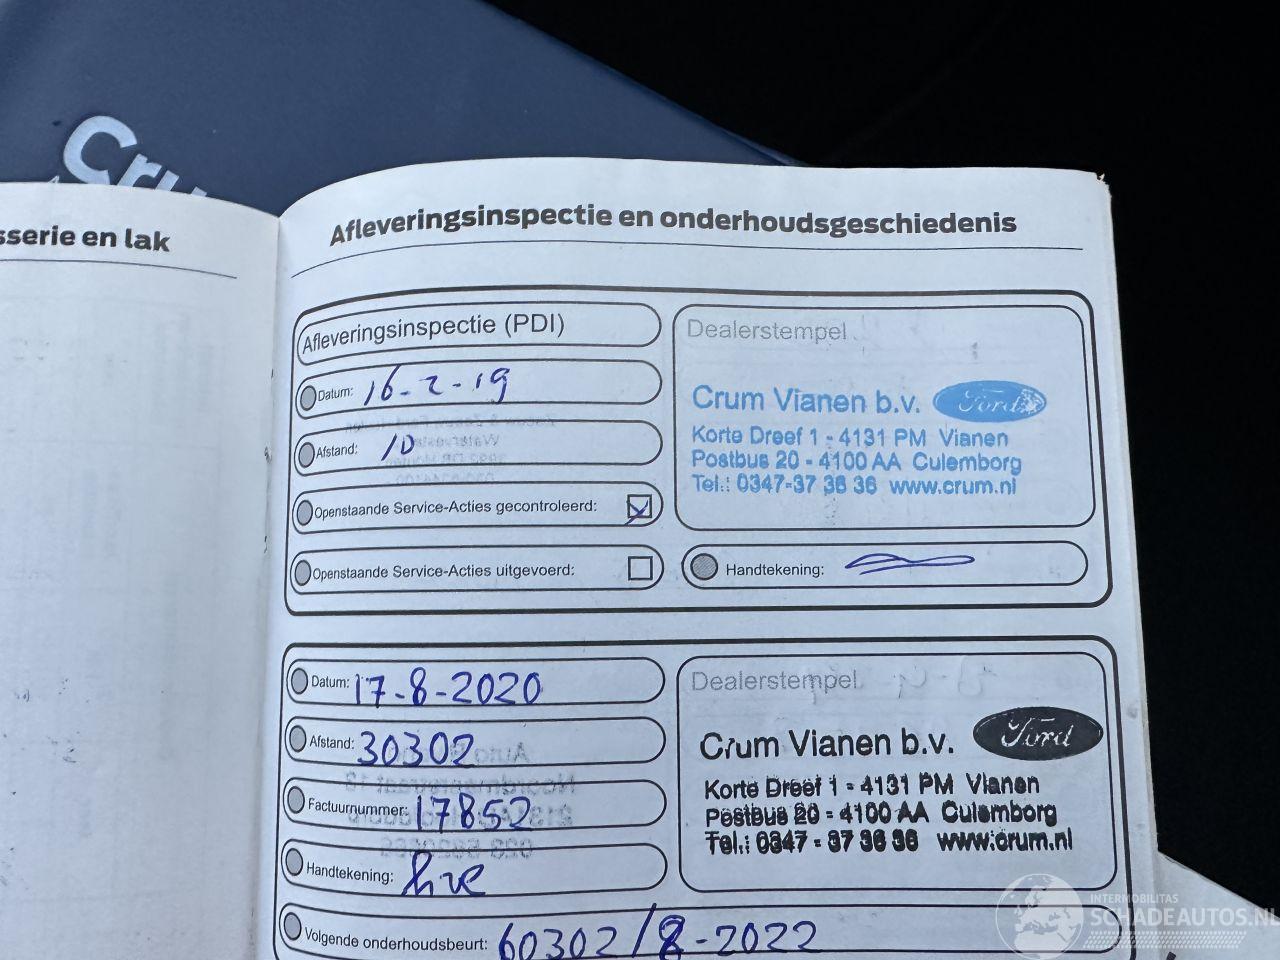 Cru
sserie en lak
Afleveringsinspectie en onderhoudsgeschiedenis
Afleveringsinspectie (PDI)
Datum: 16-2-19
Afstand: 10
Openstaande Service-Acties gecontroleerd:
Openstaande Service-Acties uitgevoerd:
Dealerstempel
Crum Vianen b.v. Ford
Korte Dreef 1 - 4131 PM Vianen
Postbus 20 - 4100 AA Culemborg
Tel.: 0347-37 36 36 www.crum.nl
Handtekening:
Datum: 17-8-2020
Afstand: 30302
Factuurnummer: 17852
Handtekening:
Volgende onderhoudsbeurt: 60302/8-2022
Dealerstempel
Crum Vianen b.v. Ford
Korte Dreef 1 - 4131 PM Vianen
Postbus 20 - 4100 AA Culemborg
Tel.: 0347 - 37 36 36 www.crum.nl
INTERMOBILITAS
SCHADEAUTOS.NL